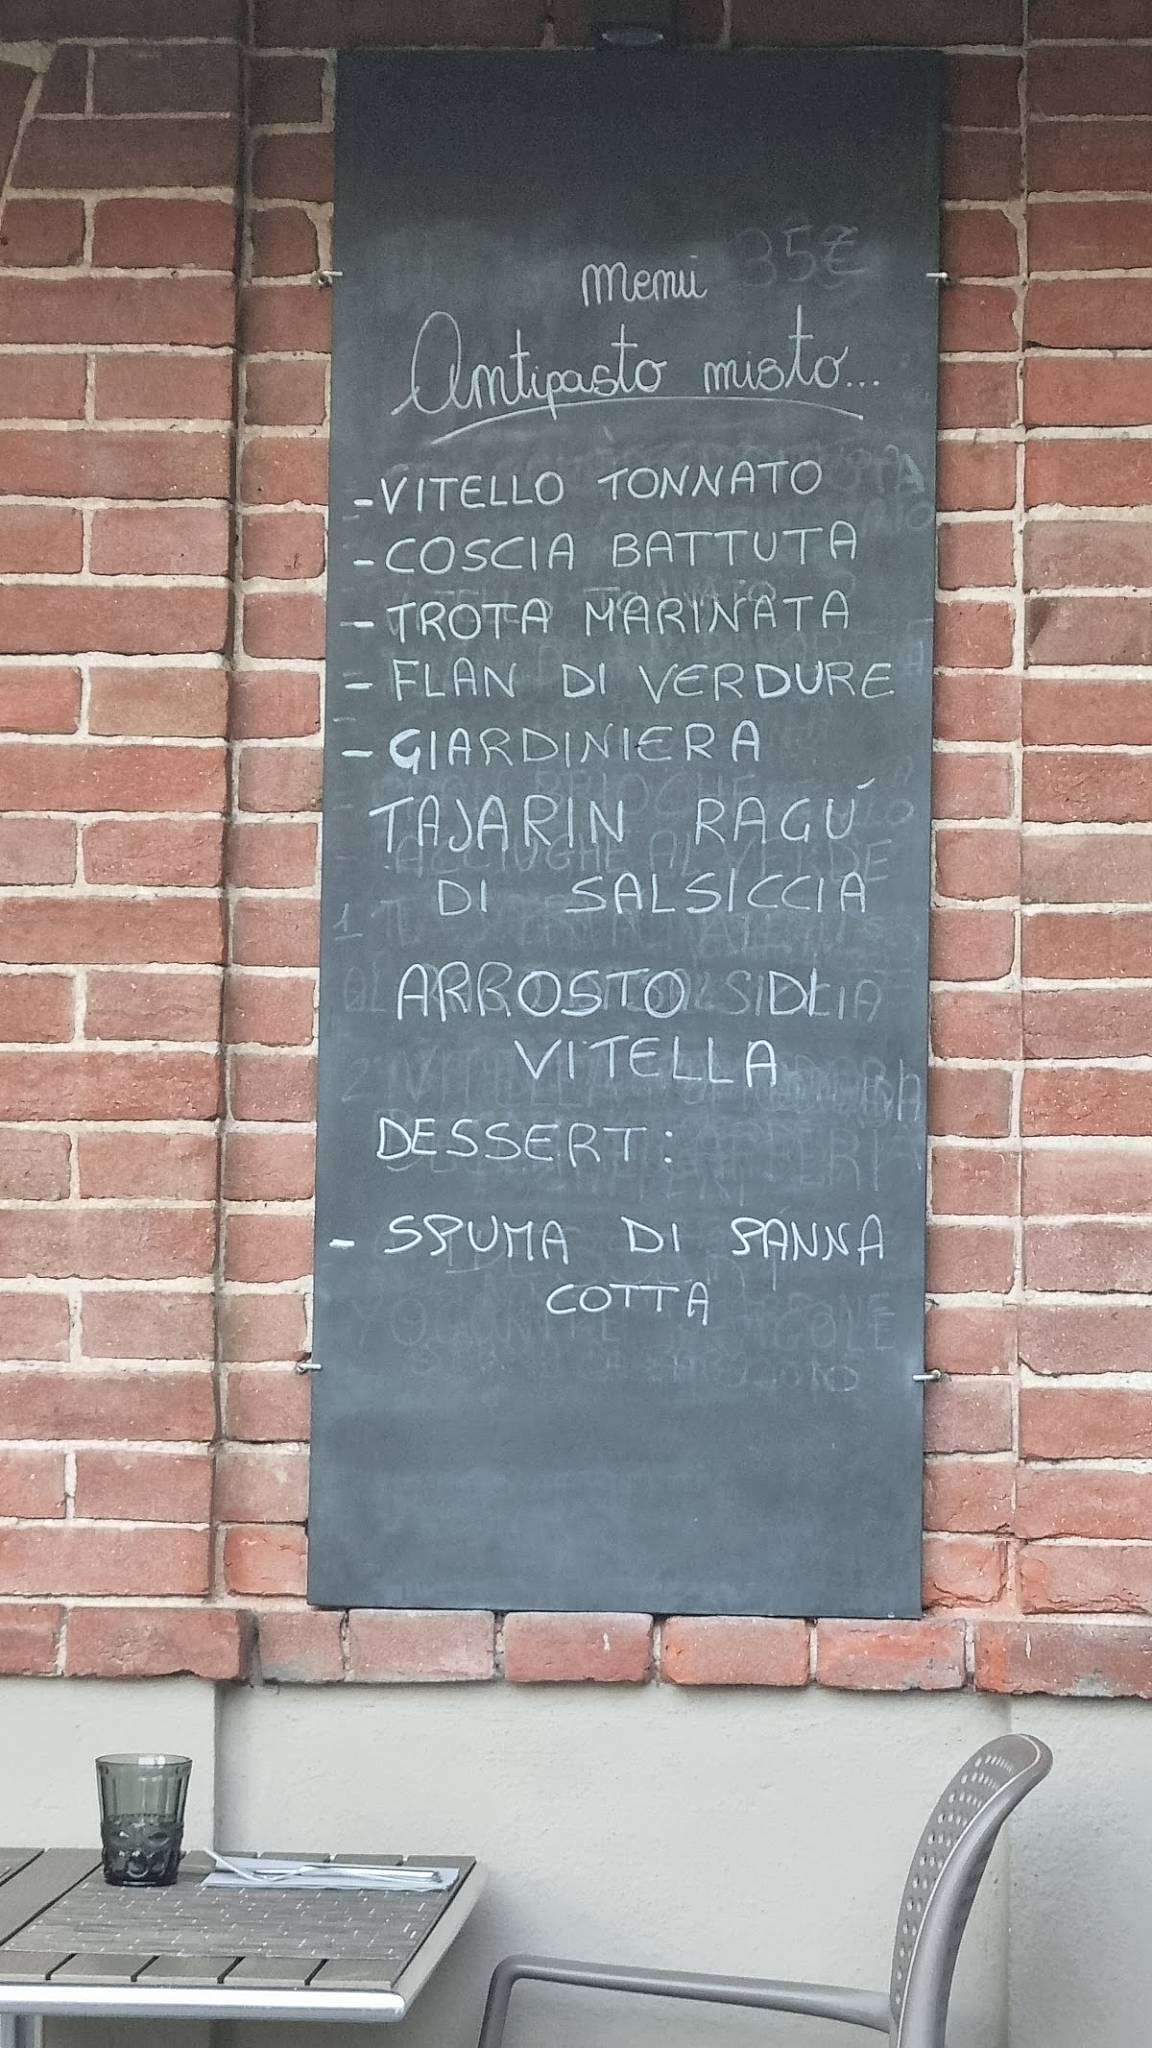 Menù 35€
Antipasto misto...
- VITELLO TONNATO
- COSCIA BATTUTA
- TROTA MARINATA
- FLAN DI VERDURE
- GIARDINIERA
TAJARIN RAGÚ
DI SALSICCIA
ARROSTO DI
VITELLA
DESSERT:
- SPUMA DI PANNA
COTTA